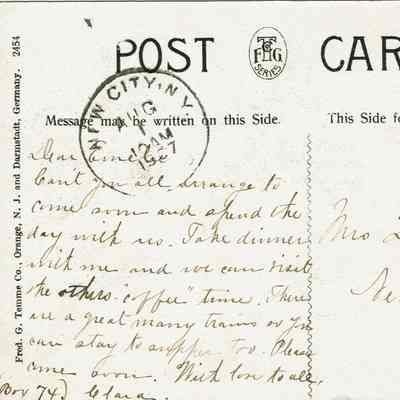 POST CAR
F T G
SERIES
Message may be written on this Side.
This Side fo
NEW CITY, N.Y.
AUG
1
12 AM
1907
Fred. G. Temme Co., Orange, N. J. and Darmstadt, Germany. 2454
Dear
Can't you all arrange to
come soon and spend the
day with us. Take dinner
with me and we can visit
the others "coffee" time. There
are a great many trains so you
can stay to supper too. Please
come soon. With love to all,
Box 74) Clara.
Mrs
Ne